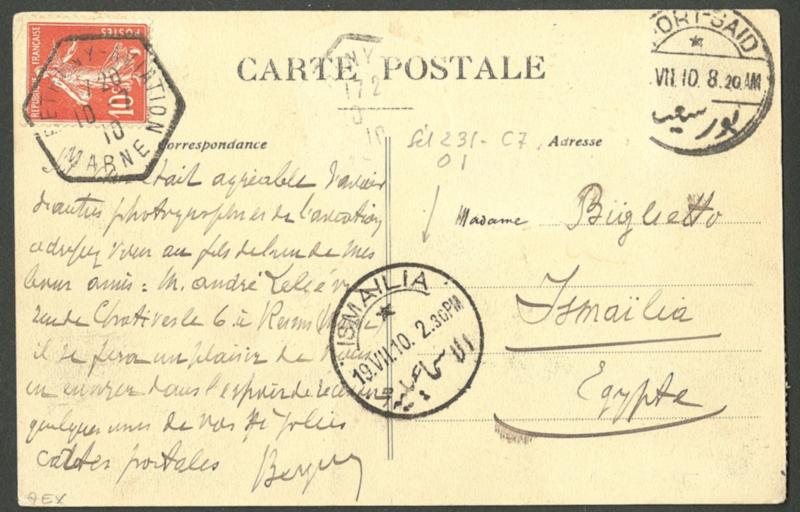 CARTE POSTALE
Correspondance
Adresse
RÉPUBLIQUE FRANÇAISE
POSTES
10
BETHENY-AVIATION
10
10
MARNE
NY
172
10
PORT-SAID
VII.10. 8.20AM
بور سعيد
231-C7
01
était agréable d'avoir
d'autres photographies de l'aviation
adressez vous au fils de l'un de mes
bons amis : M. andré Lelièvre
rue de Chativesle 6 à Reims
il se fera un plaisir de vous
en envoyer dans l'espoir de recevoir
quelques unes de vos si jolies
cartes postales
Madame Buglietto
Ismaïlia
Egypte
ISMAÏLIA
19.VII.10. 2.30PM
الاسماعيلية
QEX